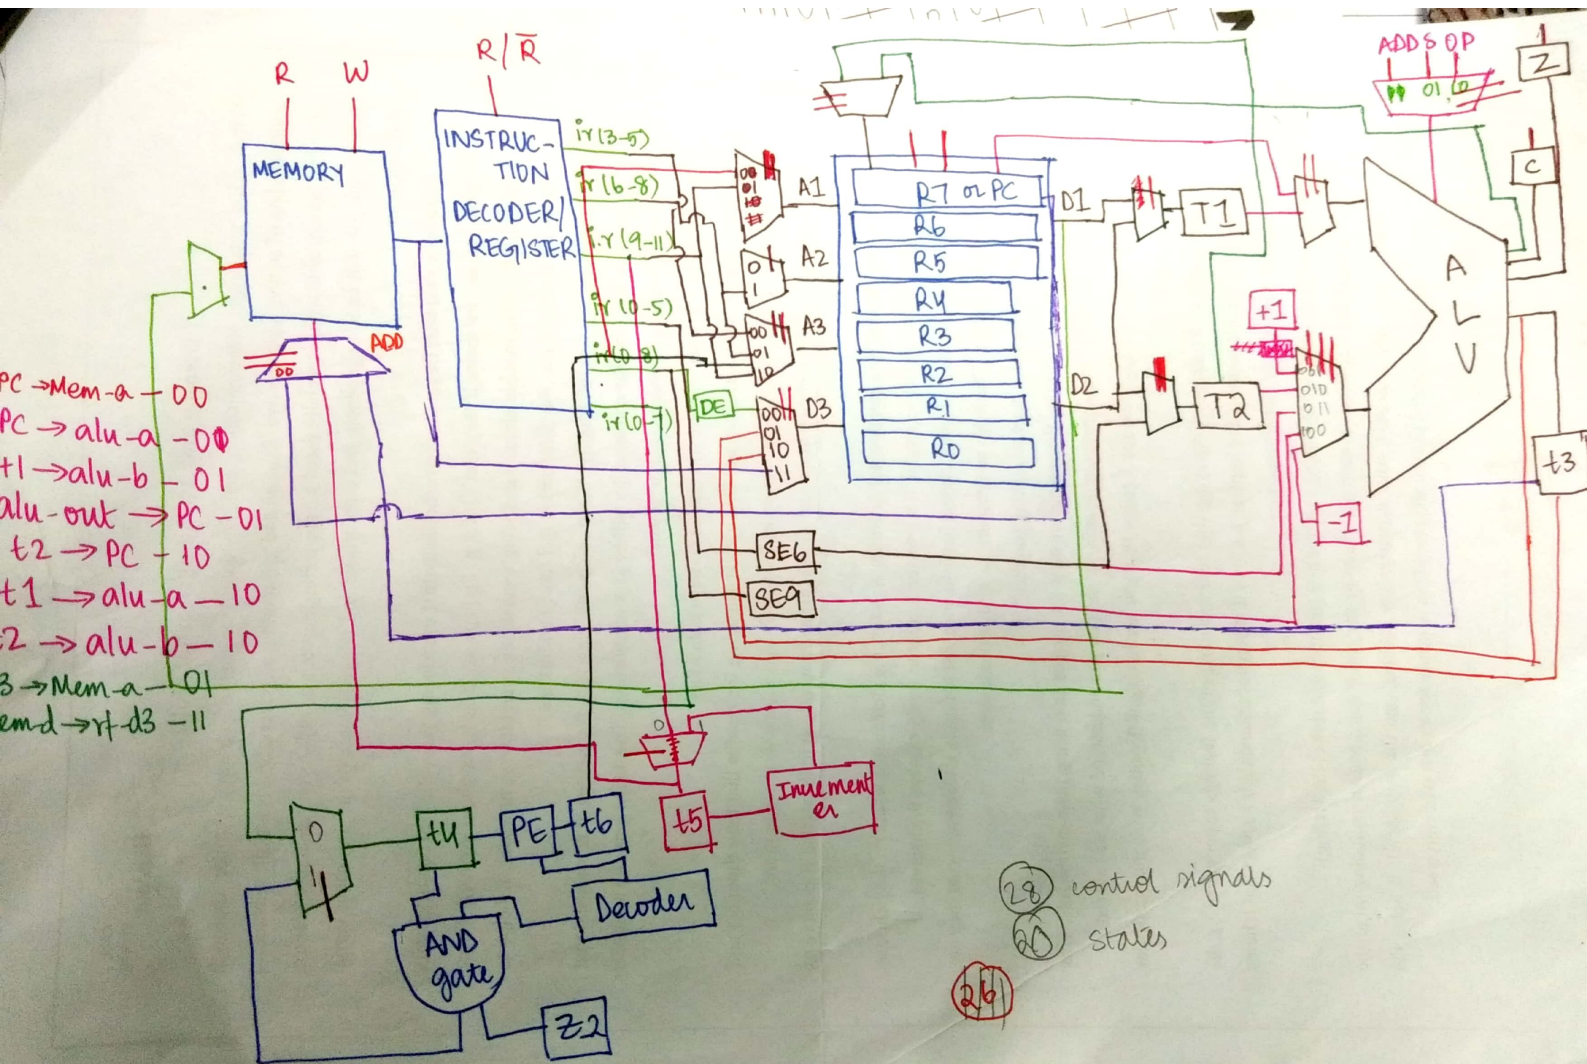 R W
R/R̅
ADD S OP
01, 10
Z
C
MEMORY
INSTRUC-
TION
DECODER/
REGISTER
ir(3-5)
ir(6-8)
i.r(9-11)
ir(0-5)
ir(0-8)
ir(0-7)
DE
ADD
00
00
01
10
A1
0
1
A2
00
01
10
A3
00
01
10
11
D3
R7 or PC
R6
R5
R4
R3
R2
R1
R0
D1
D2
T1
T2
+1
010
011
100
-1
A
L
U
t3
SE6
SE9
PC → Mem-a - 00
PC → alu-a - 00
+1 → alu-b - 01
alu-out → PC - 01
t2 → PC - 10
t1 → alu-a - 10
t2 → alu-b - 10
3 → Mem-a - 01
em-d → rf-d3 - 11
0 1
Increment
er
t5
0
1
t4
PE
t6
Decoder
AND
gate
Z2
28 control signals
20 states
26